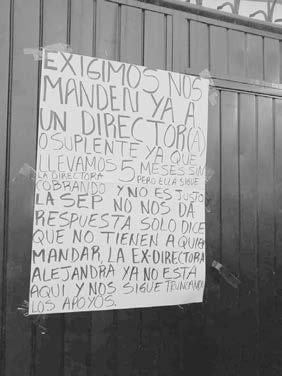 EXIGIMOS NOS
MANDEN YA A
UN DIRECTOR(A)
O SUPLENTE YA QUE
LLEVAMOS 5 MESES SIN
LA DIRECTORA PERO ELLA SIGUE
COBRANDO Y NO ES JUSTO
LA SEP NO NOS DA
RESPUESTA SOLO DICE
QUE NO TIENEN A QUIEN
MANDAR, LA EX-DIRECTORA
ALEJANDRA YA NO ESTA
AQUI Y NOS SIGUE TRUNCANDO
LOS APOYOS.